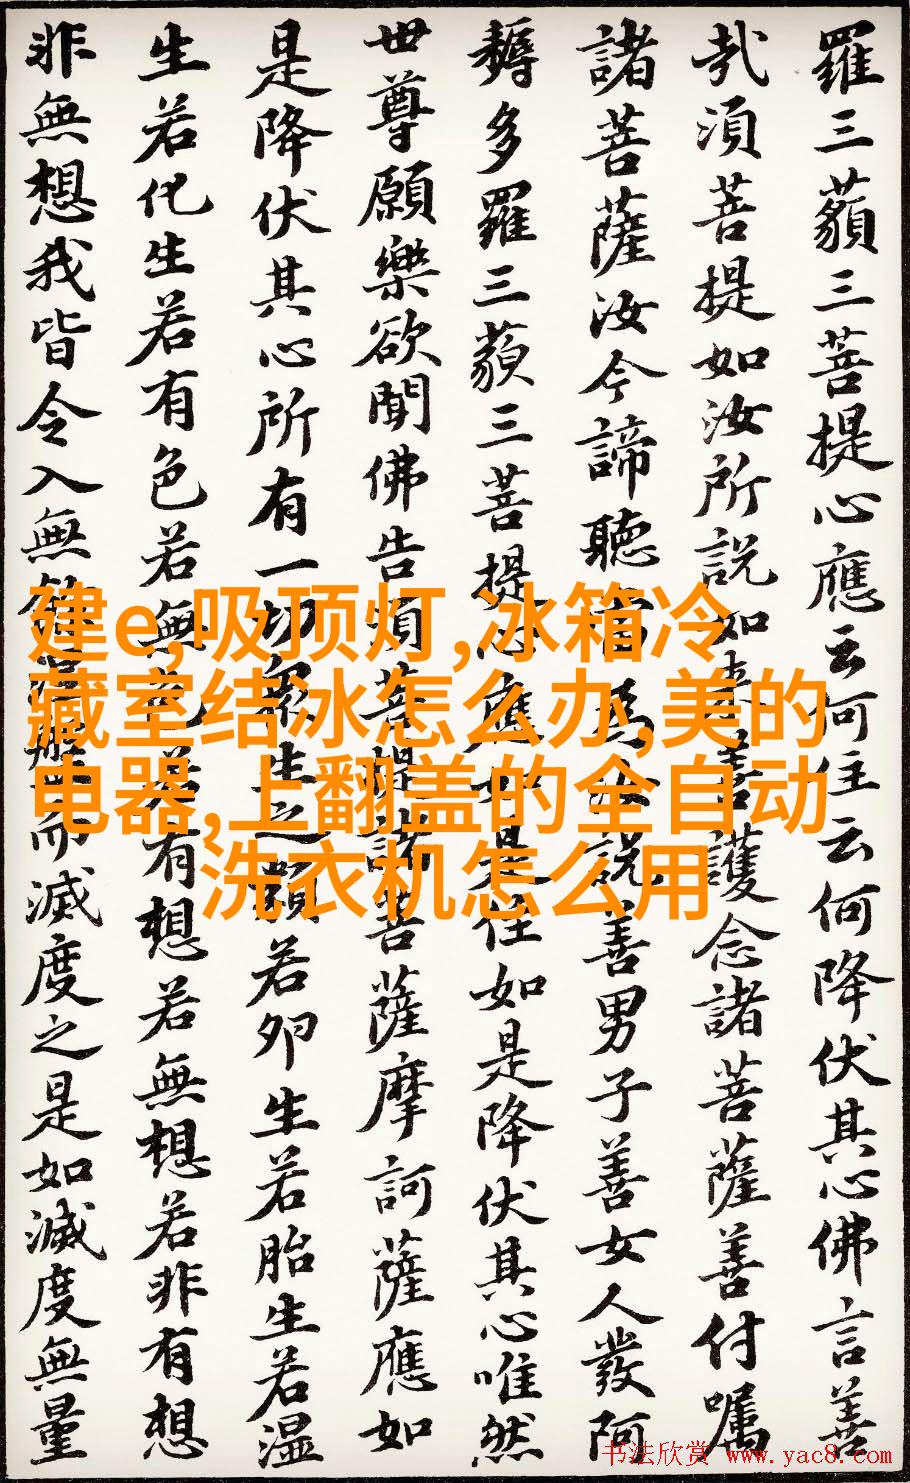 羅三藐三菩提心應云何住云何降伏其心佛言善
哉須菩提如汝所說如來善護念諸菩薩善付囑
諸菩薩汝今諦聽當為汝說善男子善女人發阿
耨多羅三藐三菩提心應如是住如是降伏其心唯然
世尊願樂欲聞佛告須菩提諸菩薩摩訶薩應如
是降伏其心所有一切眾生之類若卵生若胎生若濕
生若化生若有色若無色若有想若無想若非有想
非無想我皆令入無餘涅槃而滅度之是如滅度無量
建e,吸顶灯,冰箱冷
藏室结冰怎么办,美的
电器,上翻盖的全自动
洗衣机怎么用
书法欣赏 www.yac8.com